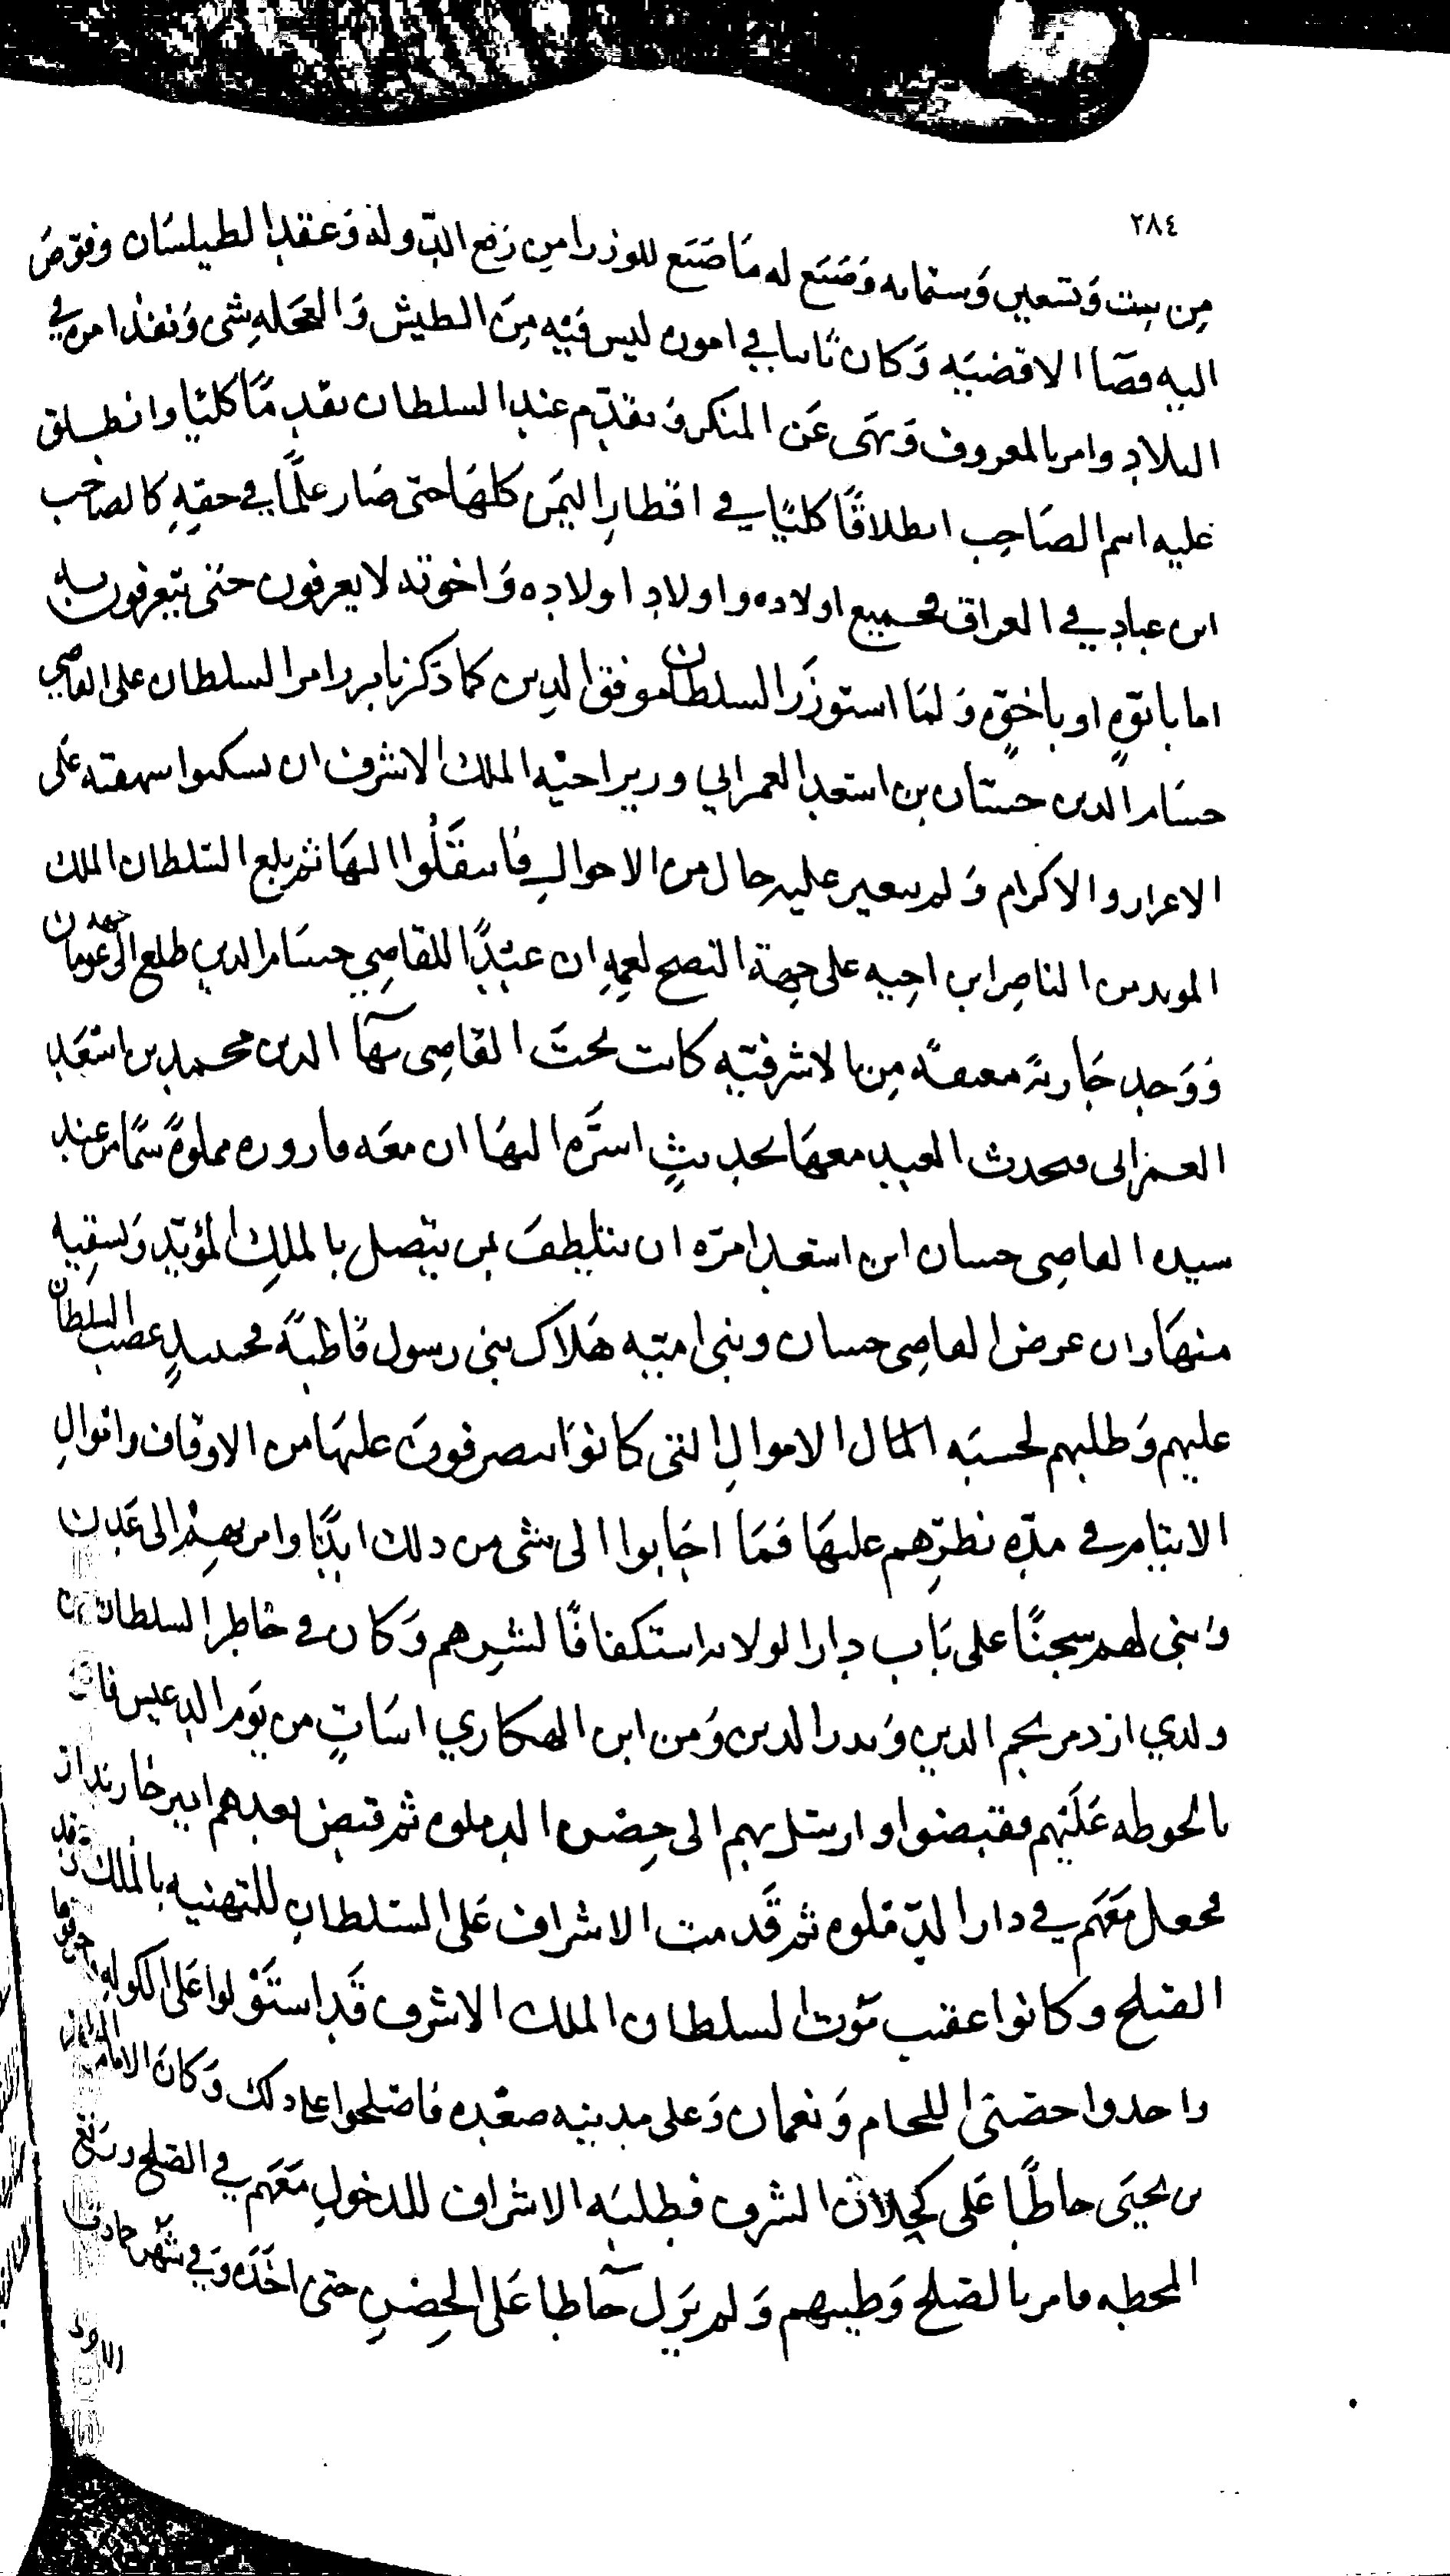 ٢٨٤
من ست وتسعين وستمايه وَصَنَع له مَا صَنَع للوزرا من رَفع الدّوله وَعَقد الطيلسَان وفوّضَ
اليه قصَا الاقضيَه وَكان ثابتا في اموره ليس فيْه مِنَ الطيش وَالعَجَله شى وَنفذ امره في
البلاد وامر بالمعروف وَنهَى عَن المنكر وَتقدّم عند السلطان تقدمًا كليًا وانطلق
عليه اسم الصَاحِب انطلاقًا كليًا في اقطار اليمَن كلهَا حتى صَار علمًا في حقهِ كالصاحب
ابن عباد في العراق فجميع اولاده واولاد اولاده وَاخوته لا يعرفون حتى يتعرفون به
اما بابوّةٍ او باخوّةٍ وَلمَا استوزَر السلطان موفق الدين كما ذكرنا برز امر السلطان على القاضي
حسَام الدين حسّان بن اسعد العمراني وزير اخيْه الملك الاشرف ان يسكنوا سهفنه على
الاعزاز والاكرام وَلم يتغير عليهم حال من الاحوالِ فانتقلُوا اليهَا ثم بلغ السّلطان الملك
المويد من الناصر ابن اخيه على جهة النصح لعمهِ ان عبْدًا للقاضِي حسَام الدين طلع الى جهه عومان
وَوَجد جَاريةً معتقه من الاشرفيّه كانت تحتَ القاضِى بهَا الدين محمد بن اسْعَد
العمرانى فتحدث العبد معهَا بحديثٍ اسَرّه اليهَا ان معَه قاروره مملوةً سمًا من عند
سيده القاضِى حسان ابن اسعد امرَه ان يتلطفَ بمن يتصل بالملك المؤيّد وَيسقِيه
منهَا وان غرض القاضِى حسان وبنى امّيه هَلاك بنى رسول قاطبةً فحينيذٍ غضب السلطان
عليهم وَطلبهم لحسبَه المال الاموال التى كانوَا يتصرفونَ عليهَا من الاوقاف واموالِ
الايتام في مدّه نظرِهم عليهَا فمَا اجَابوا الى شى من ذلك ابدًا وامر بهم الى عَدن
وَابتنى لهم سجنًا على بَاب دار الولايه استكفافًا لشرهم وَكان في خاطر السلطان من
ولدي ازدمر نجم الدين وَبدر الدين وَمن ابن الهكاري اسَآتٍ من يَوم الدعيس
بالحوطه عَليْهم فقبضوا وارسَل بهم الى حِصن الدملوه ثم قبض بعدهم امير خازندار
فجعل مَعَهم في دار الدّملوه ثم قَدمت الاشراف عَلى السّلطان للتهنيه بالملك
الصّلح وكانوا عقيب مَوت السلطان الملك الاشرف قَد استَوْلوا عَلى الكوله
واخذوا حصنى اللحام وَنعمان وَعلى مدينه صعْده فاصْلحوا على ذلك وَكان الامام
بن يحيَى حاطًا عَلى كحلان الشرف فطلبَه الاشراف للدخول مَعَهم في الصّلح ورَفع
المحطه فامر بالصّلح وَطيبهم وَلم يزَل حَاطا عَلى الحِصن حتى اخَذه وَفي شَهر جمادى